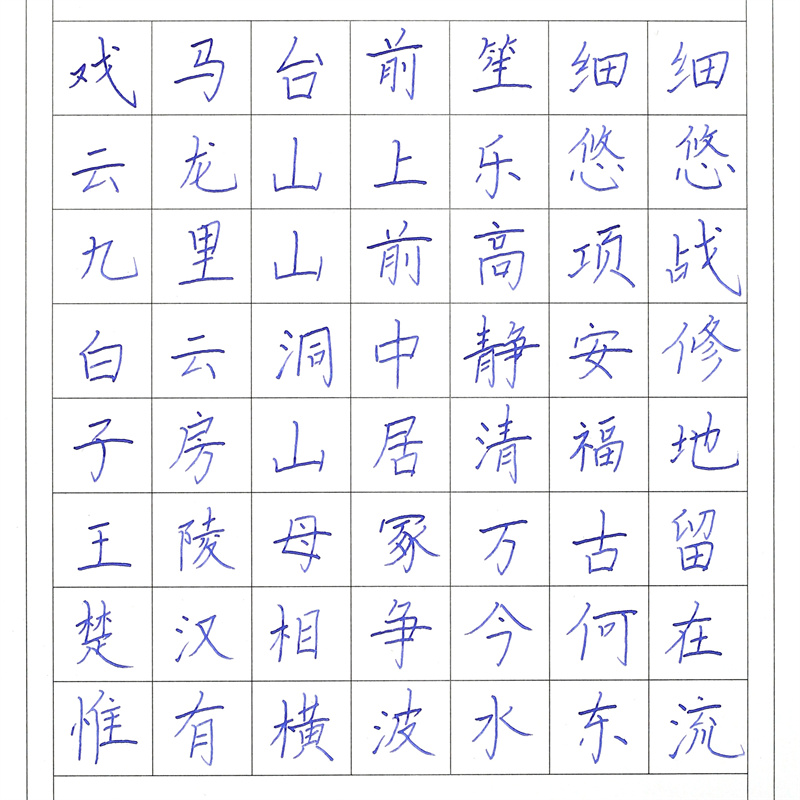 戏马台前笙细细
云龙山上乐悠悠
九里山前高项战
白云洞中静安修
子房山居清福地
王陵母冢万古留
楚汉相争今何在
惟有横波水东流